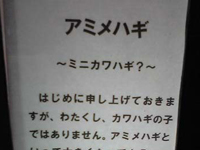 アミメハギ
〜ミニカワハギ？〜
はじめに申し上げておきま
すが、わたくし、カワハギの子
ではありません。アミメハギと